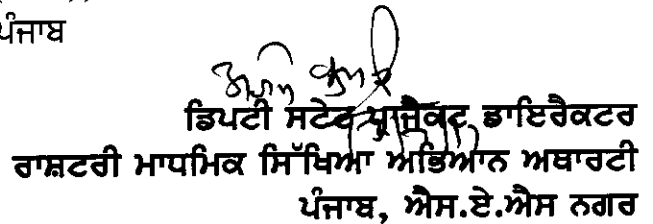 ਪੰਜਾਬ
ਡਿਪਟੀ ਸਟੇਟ ਪ੍ਰਾਜੈਕਟ ਡਾਇਰੈਕਟਰ
ਰਾਸ਼ਟਰੀ ਮਾਧਮਿਕ ਸਿੱਖਿਆ ਅਭਿਆਨ ਅਥਾਰਟੀ
ਪੰਜਾਬ, ਐਸ.ਏ.ਐਸ ਨਗਰ